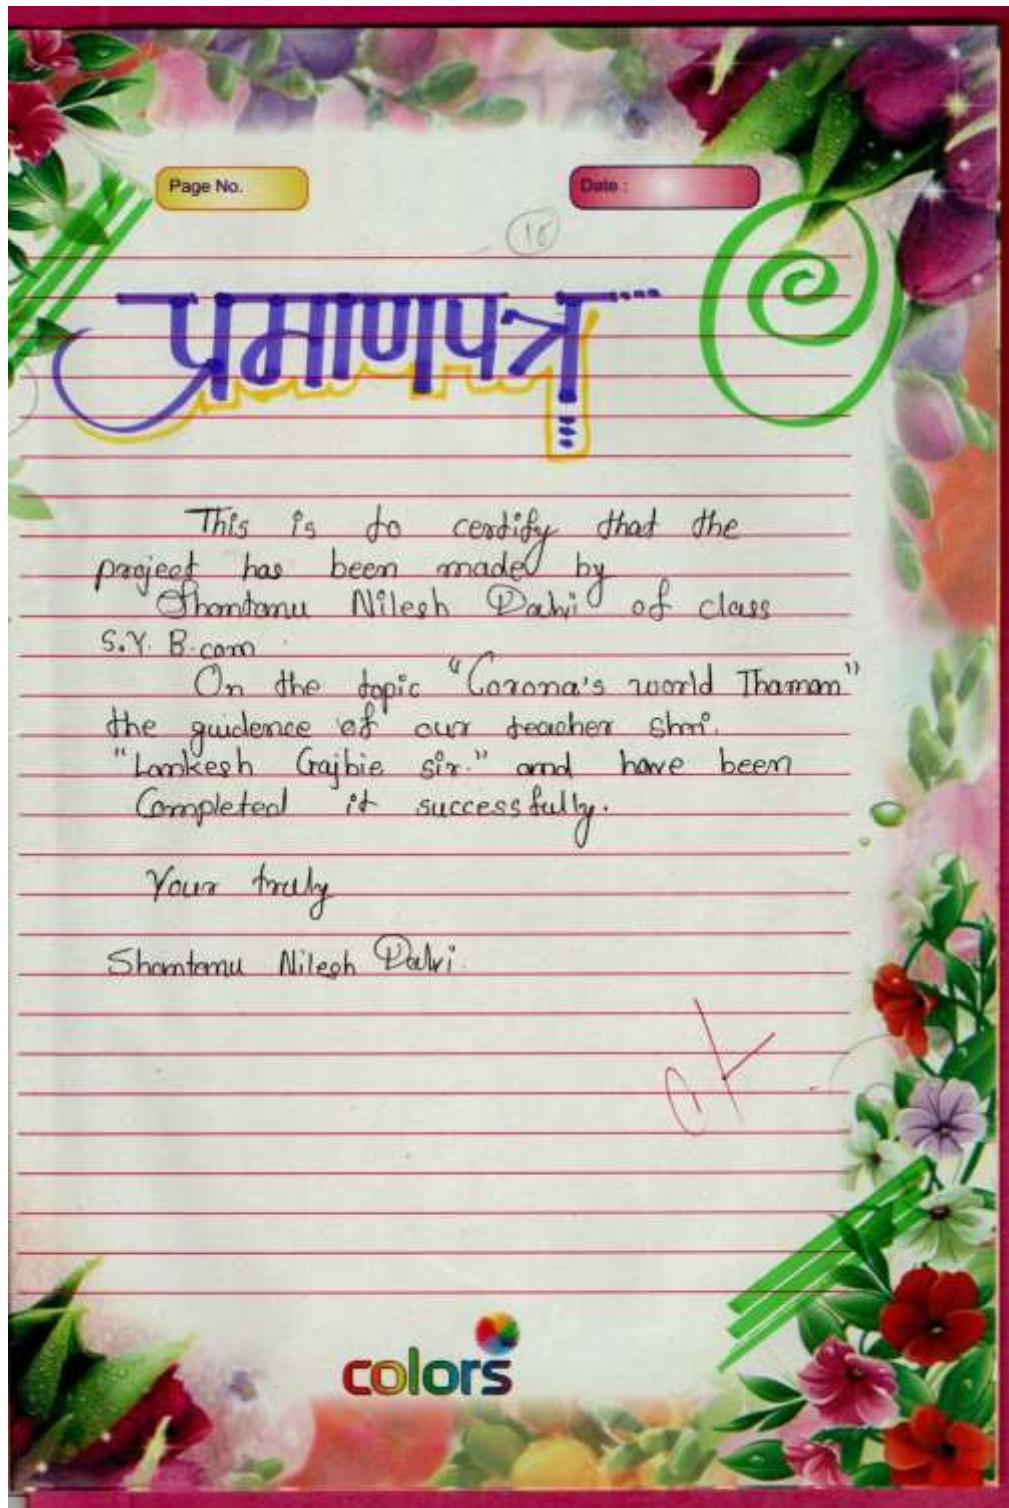 Page No.
Date :
प्रमाणपत्र
This is to certify that the
project has been made by
Shantanu Nilesh Dalvi of class
S.Y. B.com
On the topic "Corona's world Thaman"
the guidence of our teacher shri.
"Lankesh Gajbie sir." and have been
Completed it successfully.
Your truly
Shantanu Nilesh Dalvi.
ok
colors